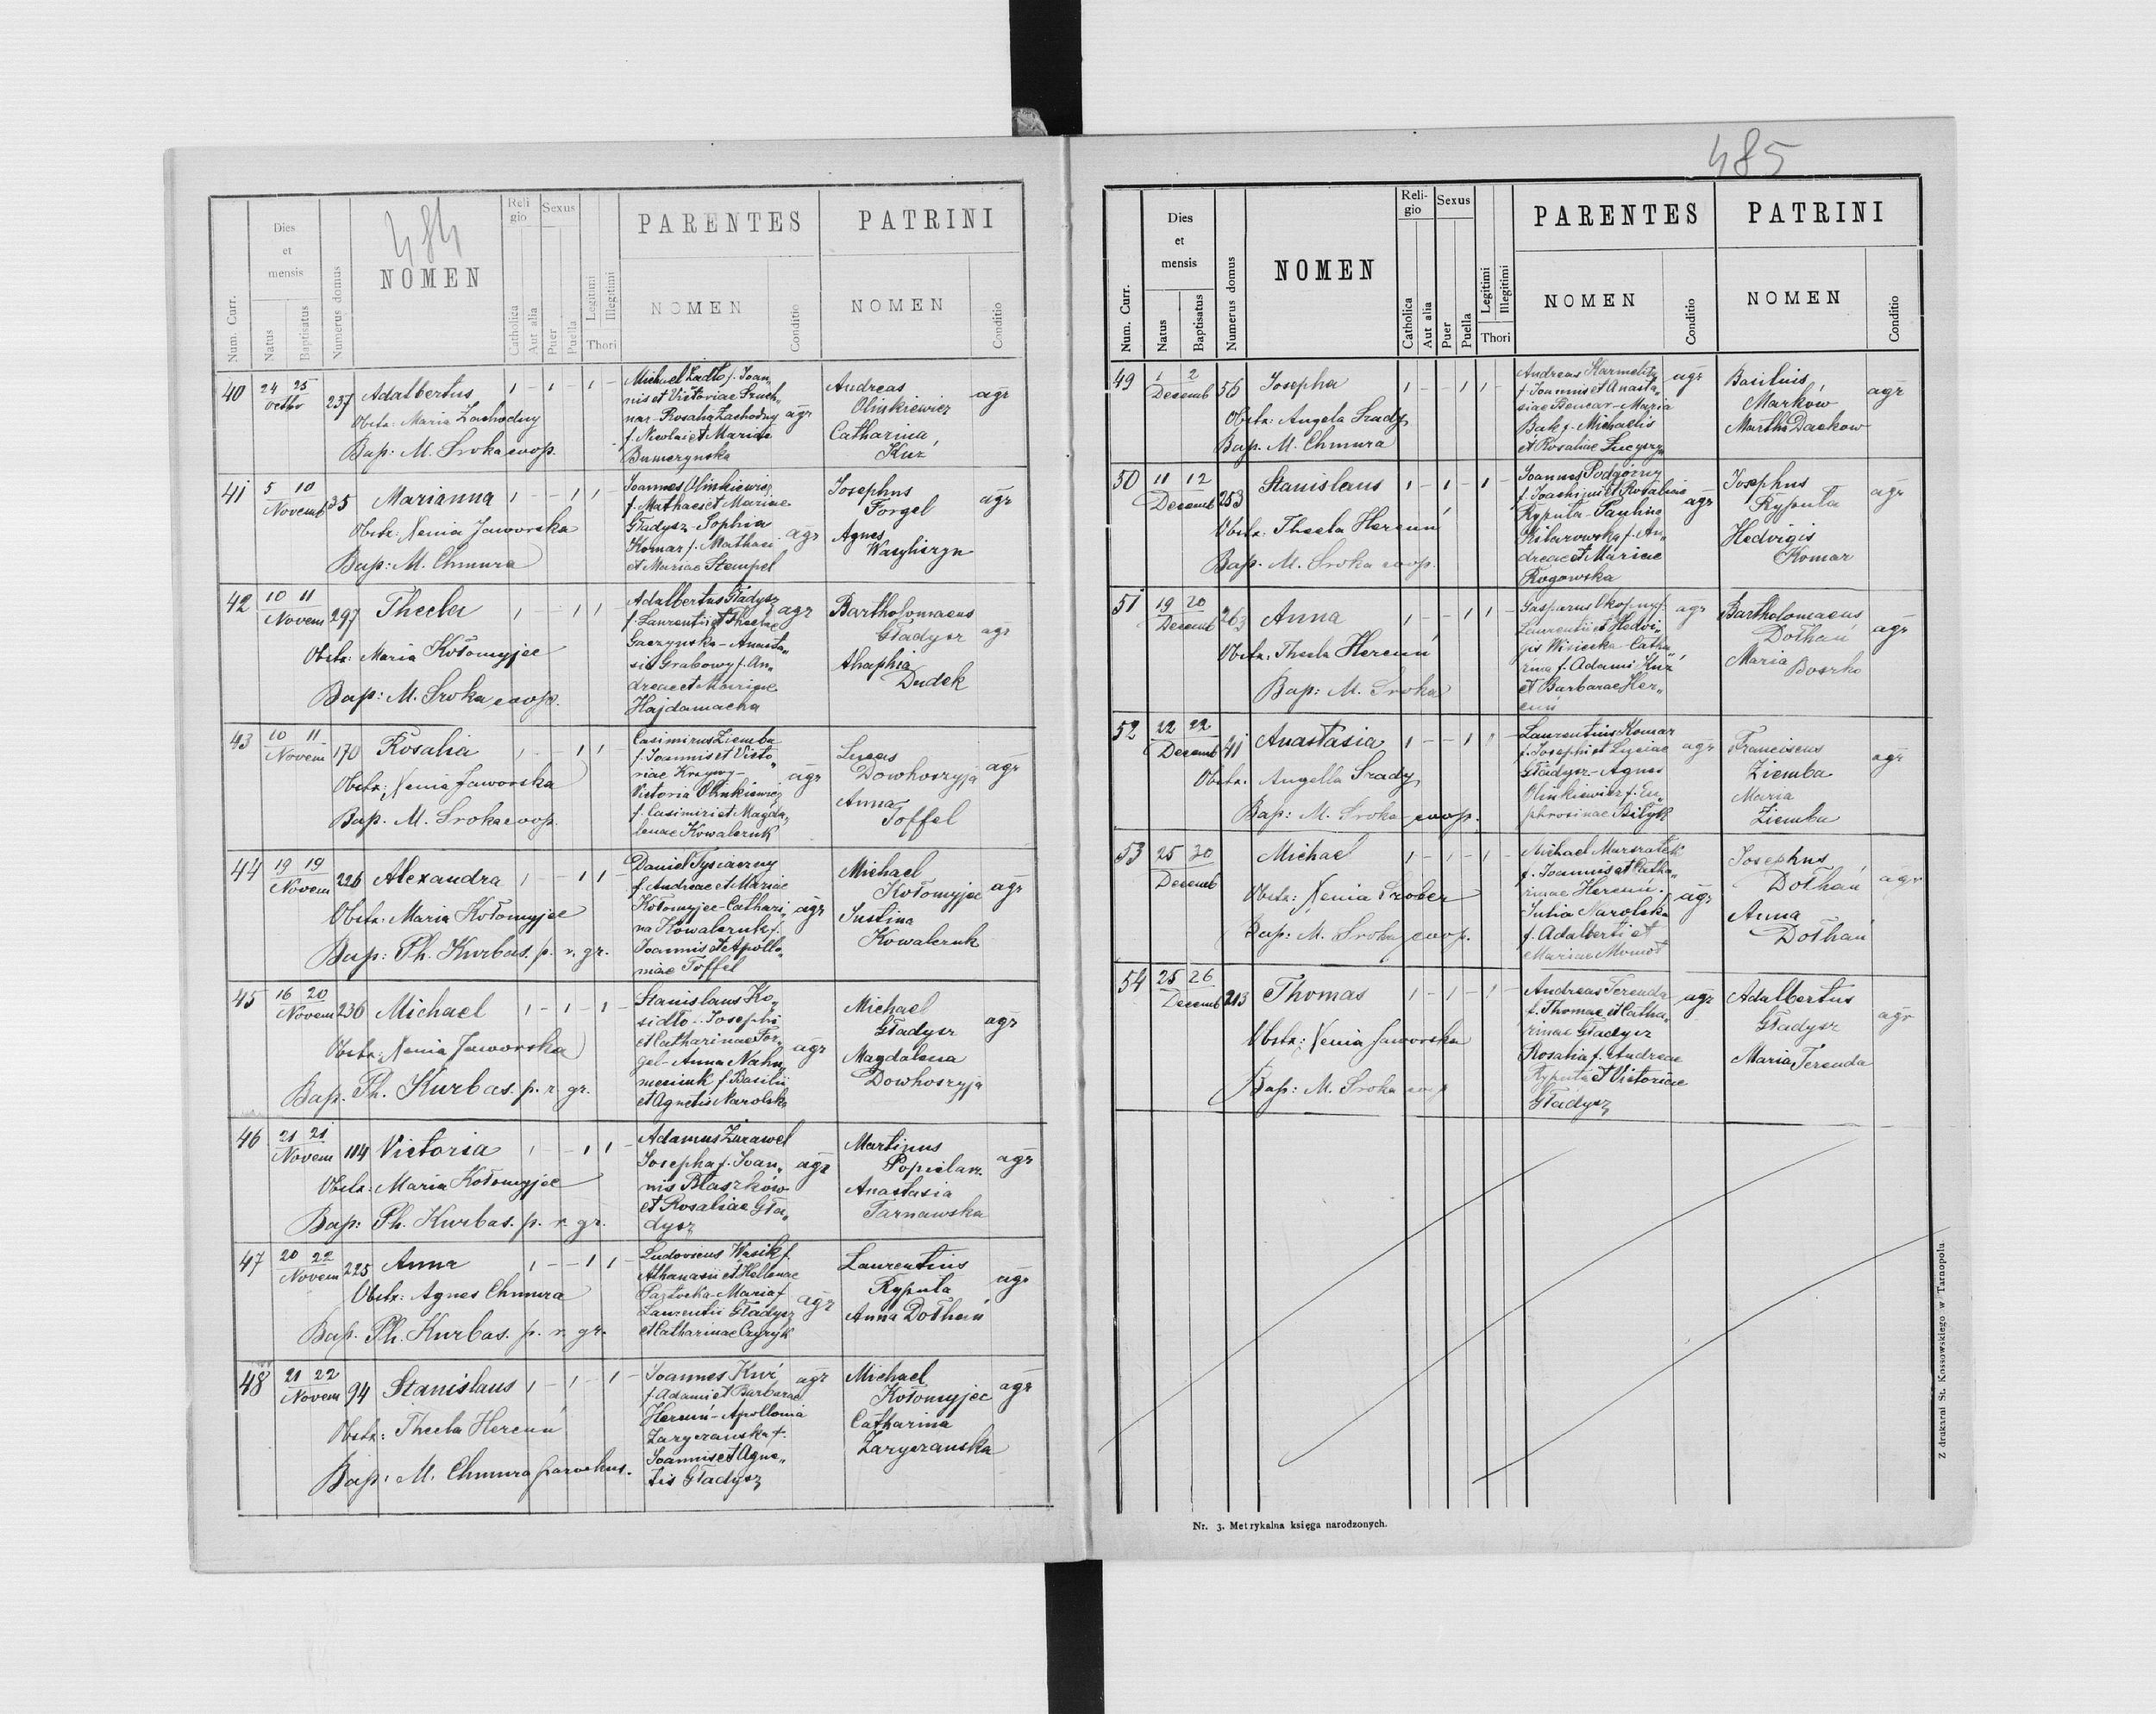 484
Num. Curr.
Dies
et
mensis
Natus
Baptisatus
Numerus domus
NOMEN
Reli
gio
Catholica
Aut alia
Sexus
Puer
Puella
Legitimi
Illegitimi
Thori
PARENTES
NOMEN
Conditio
PATRINI
NOMEN
Conditio
40 24 25 Octbr 237 Adalbertus 1 - 1 - 1 -
Obstx: Maria Zachodny
Bap: M. Sroka coop.
Michael Zadło f. Joan„
nis et Victoriae Szuch„
nar - Rosalia Zachodny agr
f. Nicolai et Mariae
Andreas
Olinkiewicz agr
Catharina
Kuz
41 5 10 Novemb 135 Marianna 1 - - 1 1 -
Obstx: Xenia Jaworska
Bap: M. Chmura
Joannes Olinkiewicz
f. Mathaei et Mariae
Gładysz - Sophia
Komar f. Mathaei agr
et Mariae Stempel
Josephus
Forgel agr
Agnes
Wasyliszyn
42 10 11 Novem 297 Thecla 1 - - 1 1 -
Obstx: Maria Kołomyjec
Bap: M. Sroka coop.
Adalbertus Gładysz agr
f. Laurentii et Theclae
Gaczyńska - Anasta„
sia Grabowy f. An„
dreae et Mariae
Hajdamacha
Bartholomaeus
Gładysz agr
Ahaphia
Dudek
43 10 11 Novem 170 Rosalia 1 - - 1 1 -
Obstx: Xenia Jaworska
Bap. M. Sroka coop.
Casimirus Ziemba
f. Joannis et Victo„
riae Krzywy - agr
Victoria Olinkiewicz
f. Casimiri et Magda„
lenae Kowalczuk
Lucas
Dowhoszyja agr
Anna
Toffel
44 19 19 Novem 226 Alexandra 1 - - 1 1 -
Obstx: Maria Kołomyjec
Bap: Ph. Kurbas. p. r. gr.
Daniel Tysiaczny
f. Andreae et Mariae
Kołomyjec - Cathari„ agr
na Kowalczuk f.
Joannis et Apollo„
niae Toffel
Michael
Kołomyjec agr
Justina
Kowalczuk
45 16 20 Novem 236 Michael 1 - 1 - 1 -
Obstx: Xenia Jaworska
Bap. Ph. Kurbas. p. r. gr.
Stanislaus Ko„
sidło - Josephi
et Catharinae For„
gel - Anna Nahu„ agr
f. Basilii
et Agnetis Narolska
Michael
Gładysz agr
Magdalena
Dowhoszyja
46 21 21 Novem 114 Victoria 1 - - 1 1 -
Obstx: Maria Kołomyjec
Bap: Ph. Kurbas. p. r. gr.
Adamus Żurawel
Josepha f. Joan„ agr
nis Błaszków
et Rosaliae Gła„
dysz
Martinus
Popielarz agr
Anastasia
Tarnawska
47 20 22 Novem 225 Anna 1 - - 1 1 -
Obstx: Agnes Chmura
Bap. Ph. Kurbas. p. r. gr.
Ludovicus Wasik f.
Athanasii et Hellenae
Maria f. agr
Laurentii Gładysz
et Catharinae Czyżyk
Laurentius
Ryputa agr
Anna Dołhań
48 21 22 Novem 94 Stanislaus 1 - 1 - 1 -
Obstx: Thecla Hercuń
Bap: M. Chmura parochus.
Joannes Kuź agr
f. Adami et Barbarae
Hercuń - Apollonia
Zaryczanska f.
Joannis et Agne„
tis Gładysz
Michael
Kołomyjec agr
Catharina
Zaryczanska
485
Num. Curr.
Dies
et
mensis
Natus
Baptisatus
Numerus domus
NOMEN
Reli-
gio
Catholica
Aut alia
Sexus
Puer
Puella
Legitimi
Illegitimi
Thori
PARENTES
NOMEN
Conditio
PATRINI
NOMEN
Conditio
49 1 2 Decemb 56 Josepha 1 - - 1 1 -
Obstx: Angela Srady
Bap. M. Chmura
Andreas Karmelita agr
f. Joannis et Anasta„
siae Bencar - Maria
Bak f. Michaelis
et Rosaliae
Basilius
Markow agr
Martha Dackow
50 11 12 Decemb 253 Stanislaus 1 - 1 - 1 -
Obstx: Thecla Hercuń
Bap. M. Sroka coop.
Joannes Podgórny
f. Joachimi et Rosaliae
Ryputa - Paulina agr
f. An„
dreae et Mariae
Rogowska
Josephus
Ryputa agr
Hedvigis
Komar
51 19 20 Decemb 263 Anna 1 - - 1 1 -
Obstx: Thecla Hercuń
Bap: M. Sroka
Gasparus Okopny f. agr
Laurentii et Hedvi„
gis - Catha„
rina f. Adami Kuź
et Barbarae Her„
cuń
Bartholomaeus
Dołhań agr
Maria
Boszko
52 22 22 Decemb 41 Anastasia 1 - - 1 1 -
Obstx. Angella Srady
Bap: M. Sroka coop.
Laurentius Komar
f. Josephi et Luciae agr
Gładysz - Agnes
Olinkiewicz f. Eu„
phrosinae Biłyk
Franciscus
Ziemba agr
Maria
Ziemba
53 25 30 Decemb Michael 1 - 1 - 1 -
Obstx: Xenia Szober
Bap: M. Sroka coop.
Michael Murszałek
f. Joannis et Catha„
rinae Hercuń. agr
Julia Narolska
f. Adalberti et
Mariae Momot
Josephus
Dołhań agr
Anna
Dołhań
54 25 26 Decemb 213 Thomas 1 - 1 - 1 -
Obstx: Xenia Jaworska
Bap: M. Sroka coop
Andreas Terenda agr
f. Thomae et Catha„
rinae Gładysz
Rosalia f. Andreae
Ryputa et Victoriae
Gładysz
Adalbertus
Gładysz agr
Maria Terenda
Nr. 3. Metrykalna księga narodzonych.
Z drukarni St. Kossowskiego w Tarnopolu.